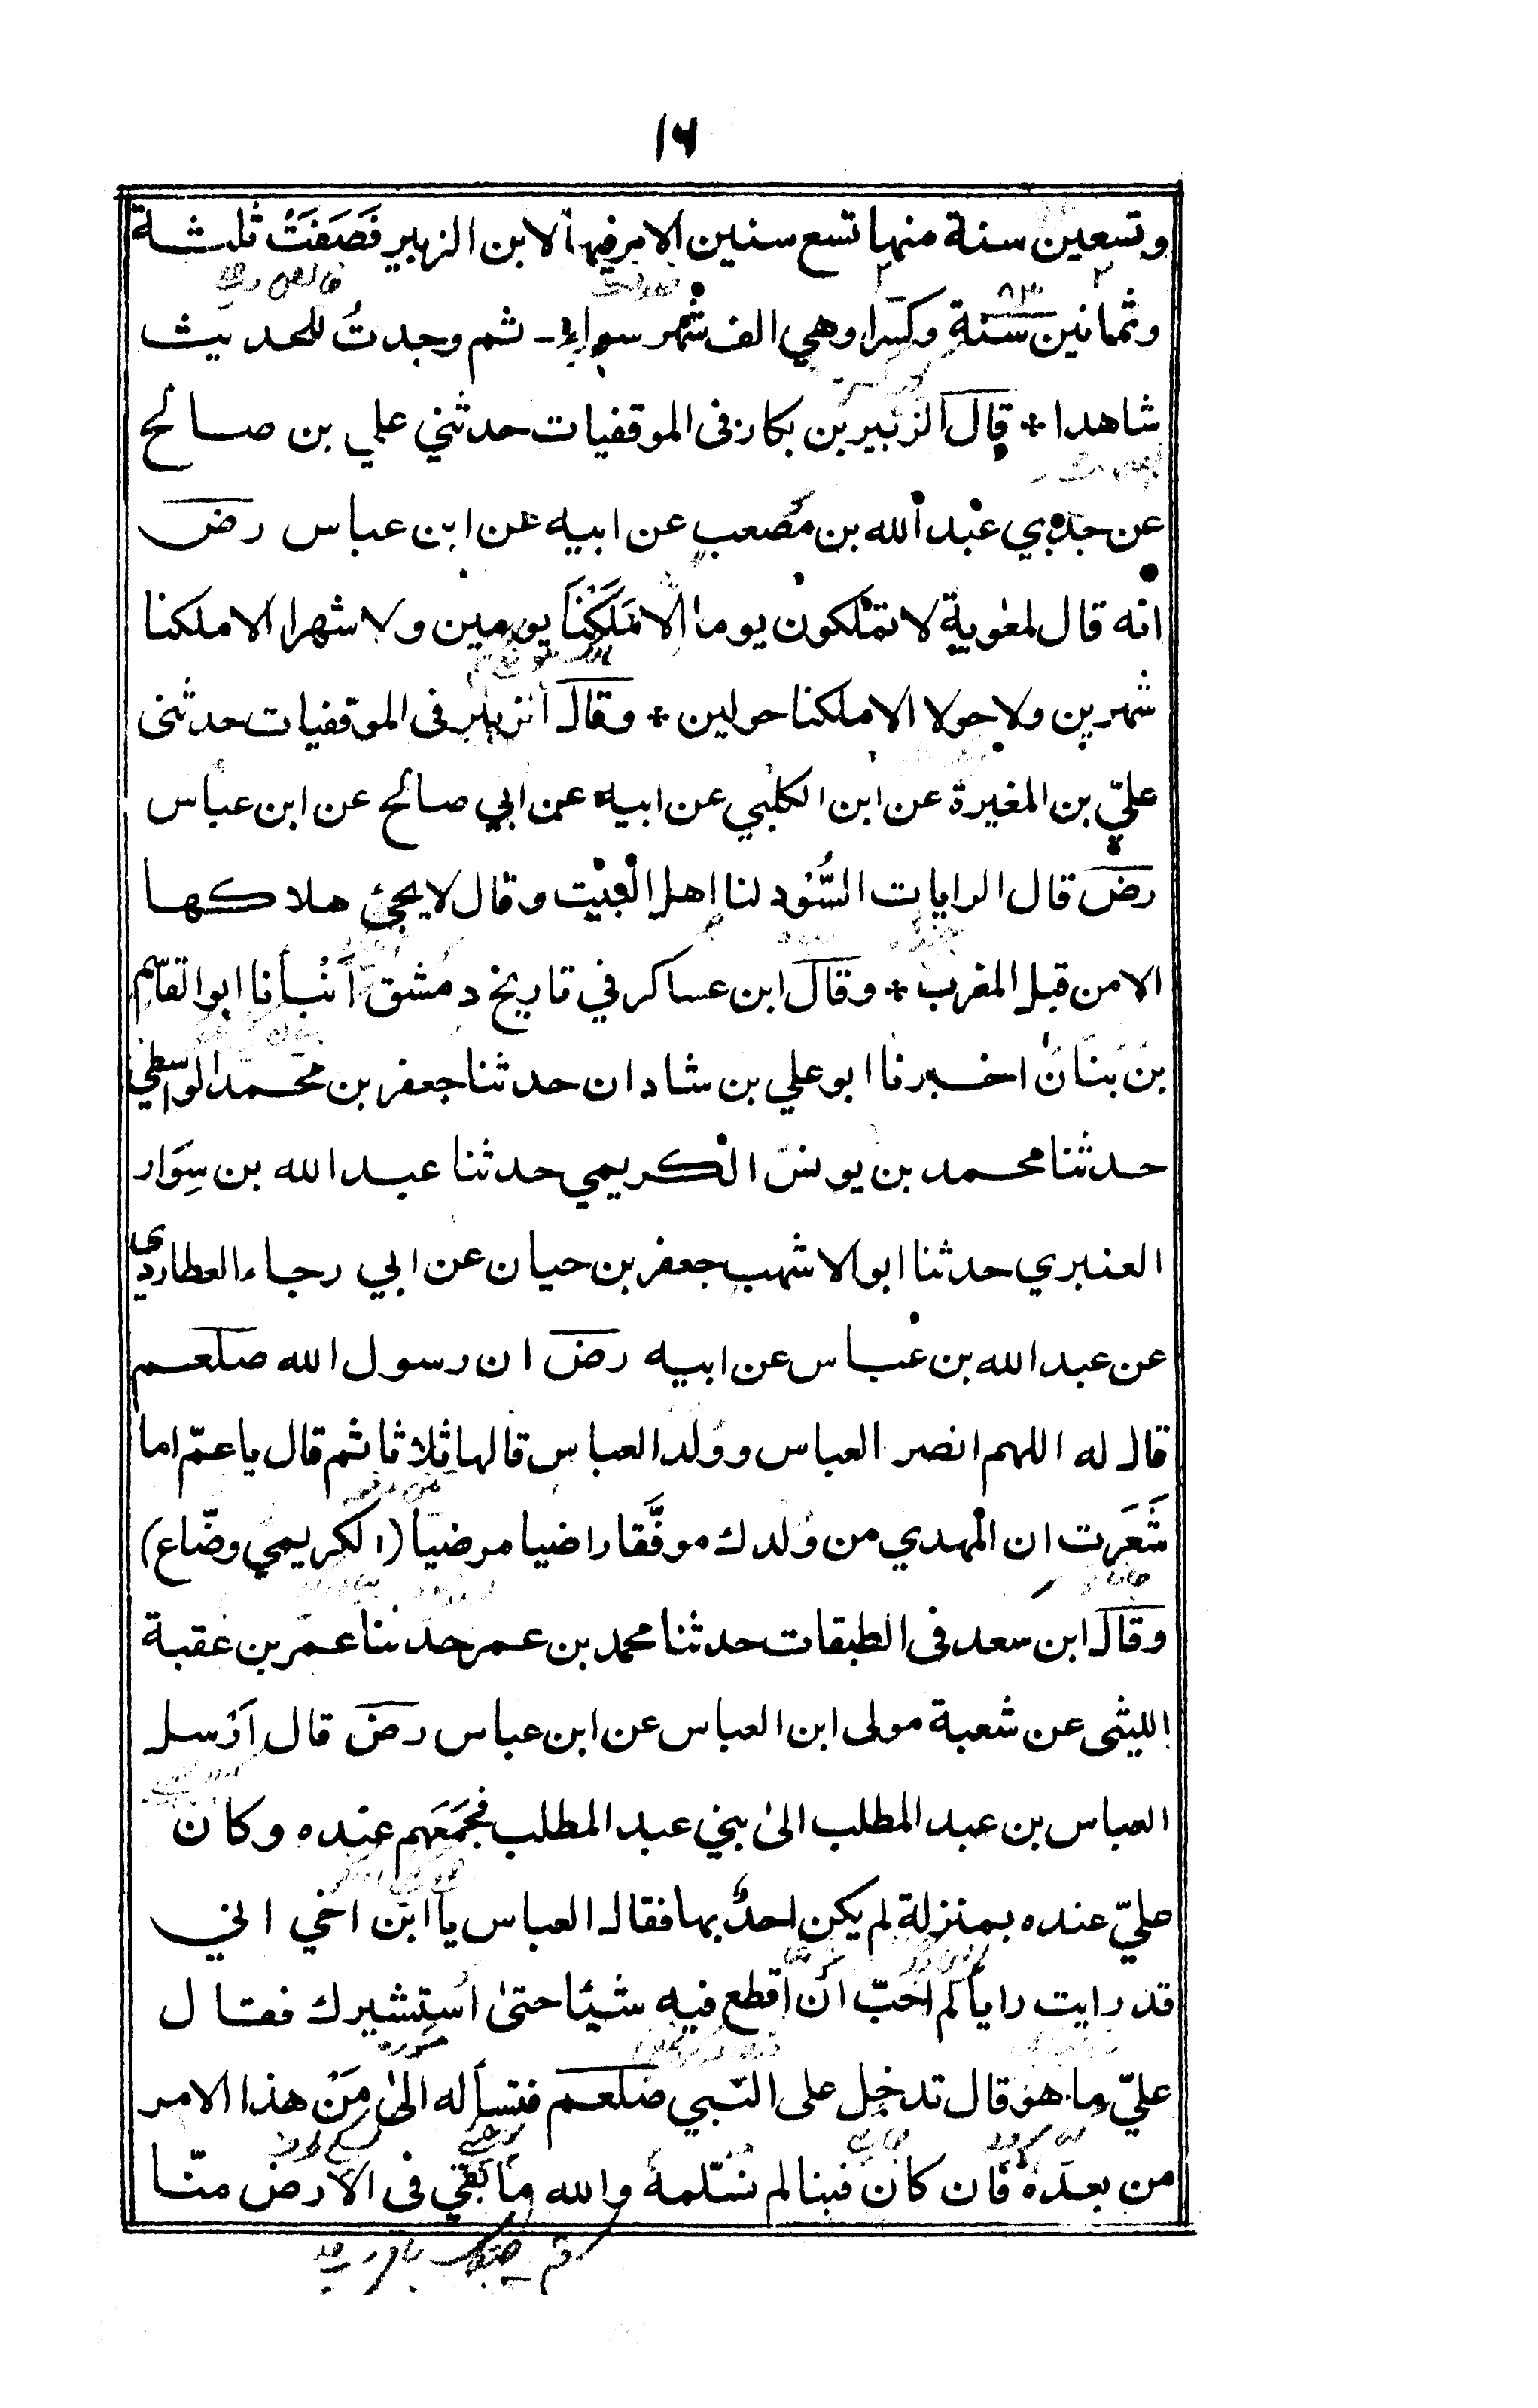 ١٦
وتسعين سنة منها تسع سنين الامر فيها لابن الزبير فَصَفَتْ ثلثة
وثمانين سنة وكسرا وهي الف شهر سواء ـ ثم وجدتُ للحديث
شاهدا * قال الزبير بن بكار فى الموقفيات حدثني علي بن صالح
عن جدي عبد الله بن مصعب عن ابيه عن ابن عباس رض
انه قال لمعٰوية لا تملكون يوما الا مَلَكْنَا يومين ولا شهرا الا ملكنا
شهرين ولا حولا الا ملكنا حولين * وقال الزبير فى الموقفيات حدثنى
عليّ بن المغيرة عن ابن الكلبي عن ابيه عن ابي صالح عن ابن عباس
رض قال الرايات السُّوْد لنا اهل البيت وقال لا يجئ هلاكها
الا من قبل المغرب * وقال ابن عساكر في تاريخ دمشق اَنْبأنا ابو القاسم
بن بَنَان اخبرنا ابو علي بن شادان حدثنا جعفر بن محمد الواسطي
حدثنا محمد بن يونس الكريمي حدثنا عبد الله بن سِوَار
العنبري حدثنا ابو الاشهب جعفر بن حيان عن ابي رجاء العطاردي
عن عبد الله بن عباس عن ابيه رض ان رسول الله صلعم
قال له اللهم انصر العباس وولد العباس قالها ثلاثا ثم قال يا عمّ اما
شَعَرت ان المهدي من ولدك موفَّقا راضيا مرضيا (الكريمي وضّاع)
وقال ابن سعد فى الطبقات حدثنا محمد بن عمر حدثنا عمر بن عقبة
الليثى عن شعبة مولى ابن العباس عن ابن عباس رض قال اَرْسل
العباس بن عبد المطلب الىٰ بني عبد المطلب فجَمَعَهم عنده وكان
عليّ عنده بمنزلة لم يكن احدٌ بها فقال العباس يا ابن اخي اني
قد رايت رأيا لم احبّ ان اقطع فيه شيئا حتىٰ استشيرك فقال
عليّ ما هو قال تدخل على النّبي صلعم فتسأله الىٰ مَنْ هذا الامر
من بعده فان كان فينا لم نسّلمه والله ما بقي فى الارض منّا